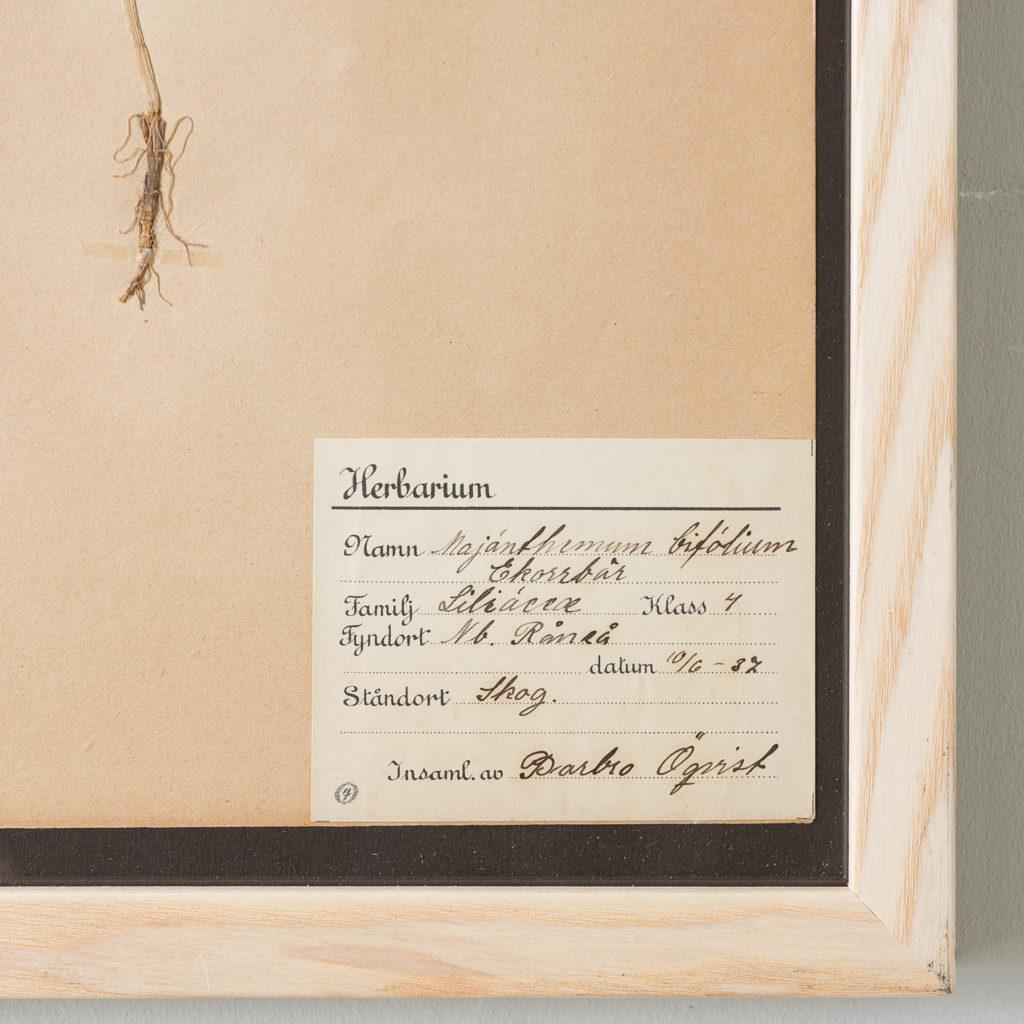 Herbarium
Namn Majánthemum bifólium
Ekorrbär
Familj Liliáceæ Klass 4
Fyndort Nb. Råneå
datum 10/6 - 37
Ståndort Skog.
Insaml. av Barbro Öqvist
4